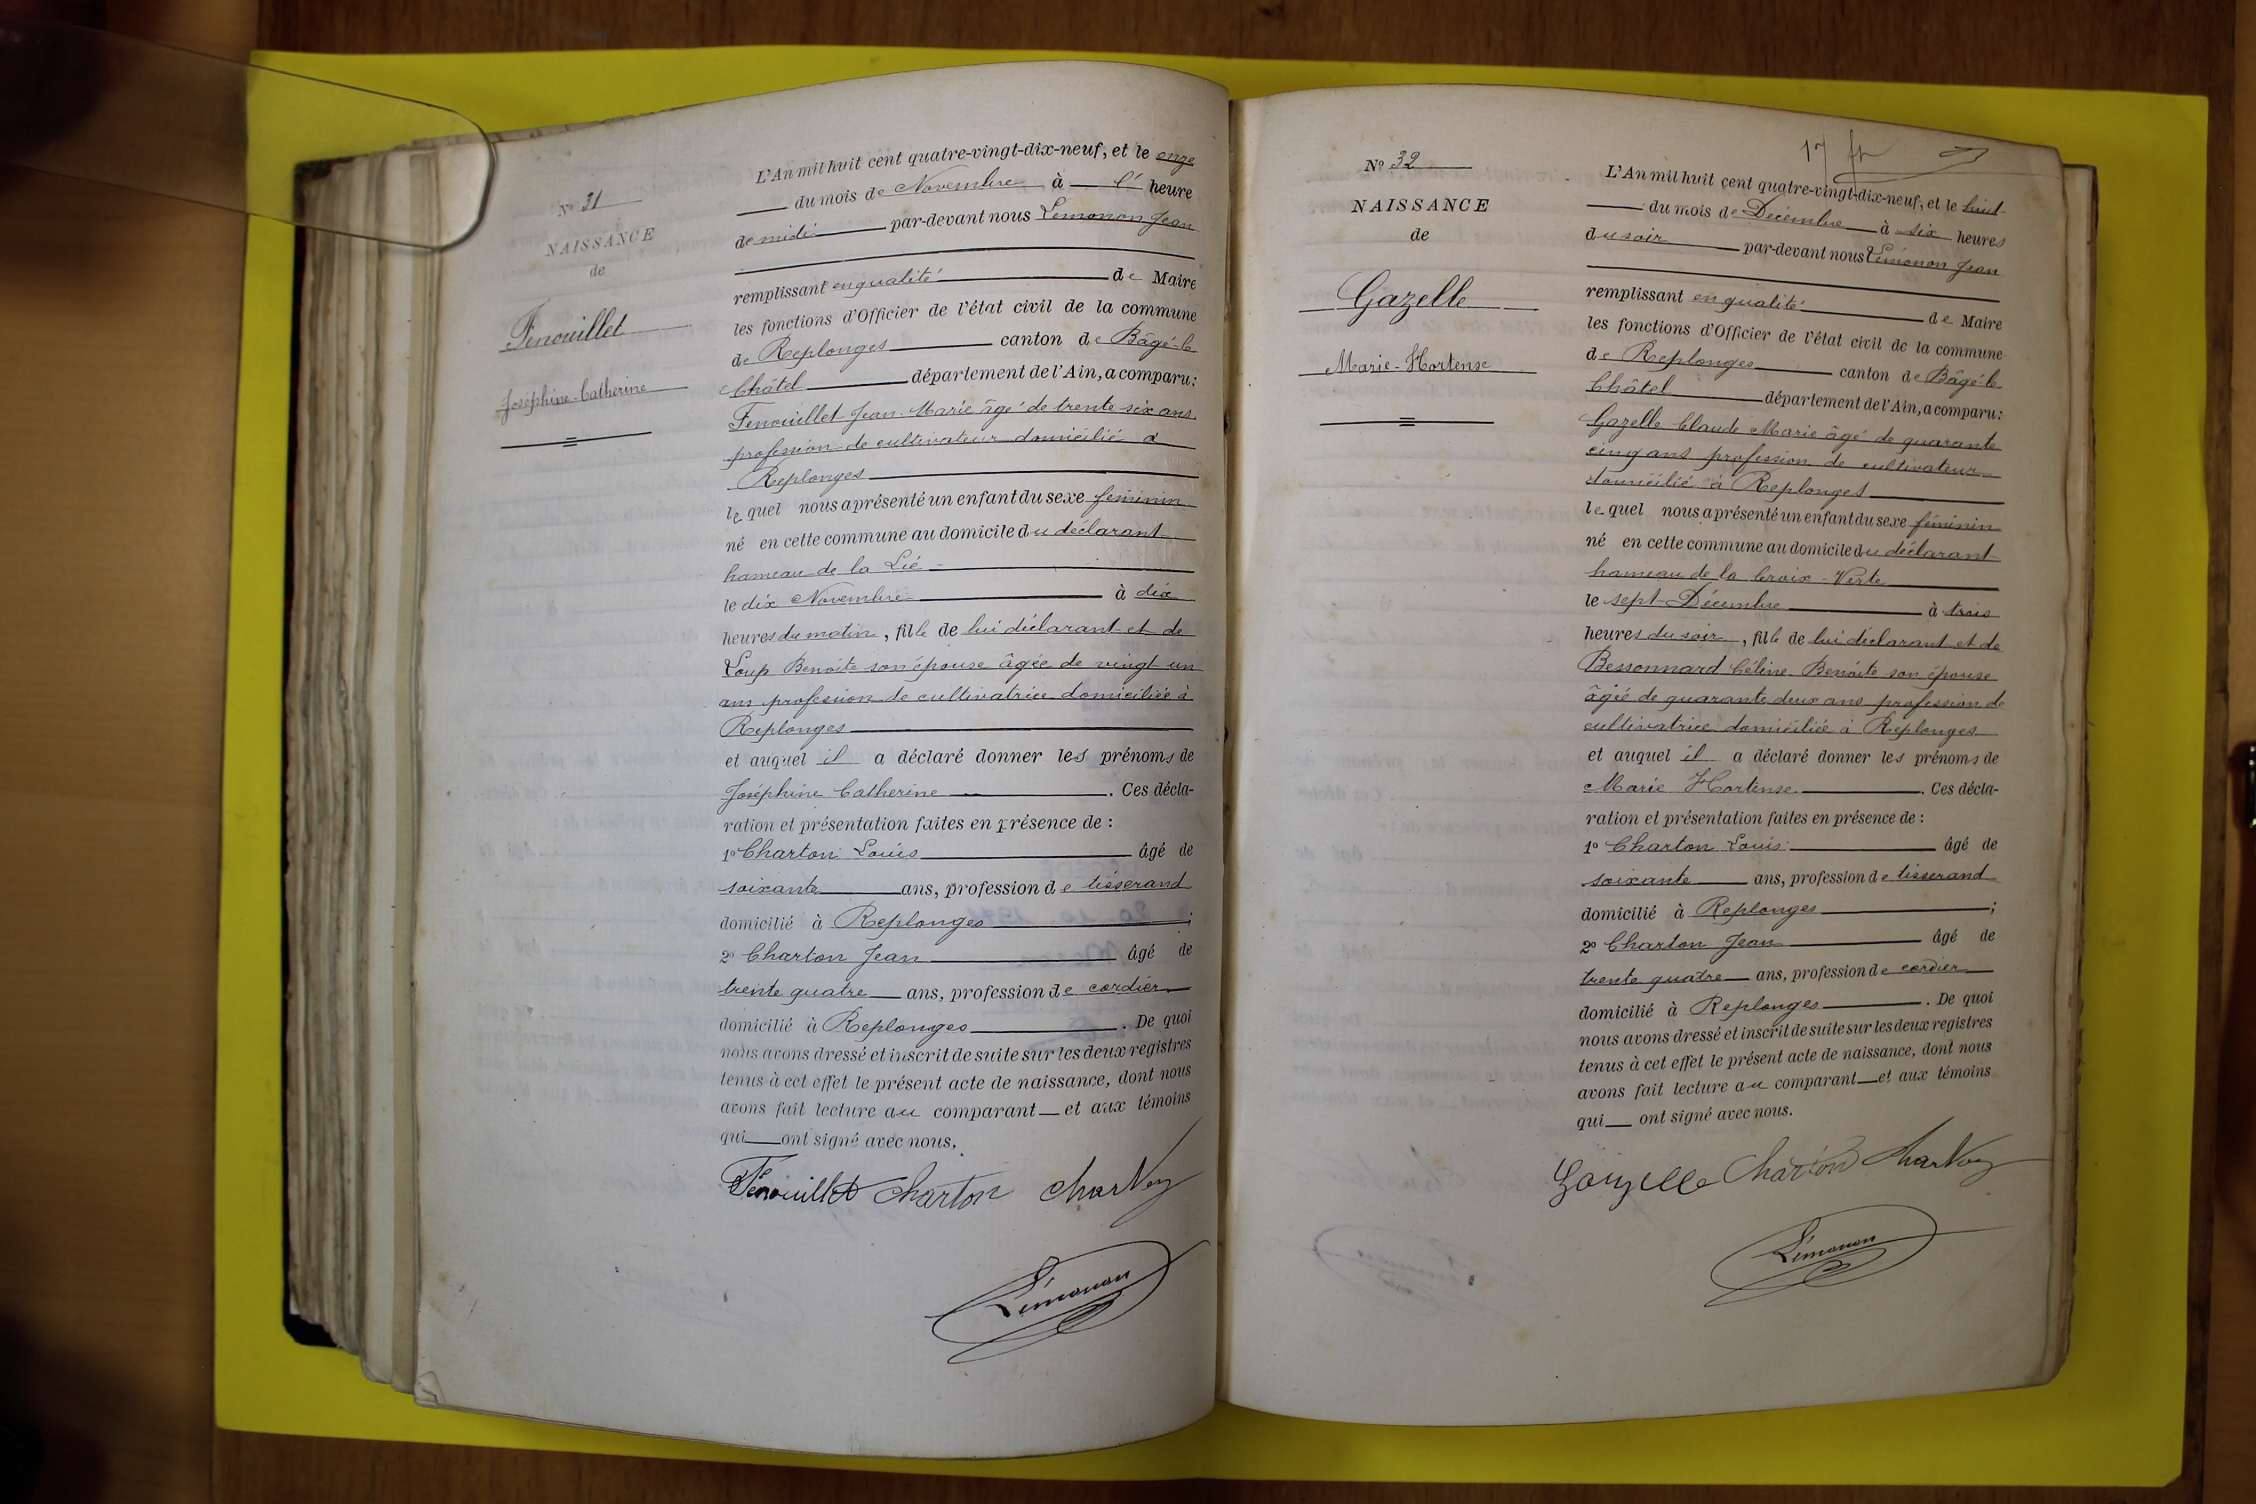 Nº 31
NAISSANCE
de
Fenouillet
Joséphine-Catherine
L'An mil huit cent quatre-vingt-dix-neuf, et le onze
du mois de Novembre à l' heure
de midi par-devant nous Lémonon Jean
remplissant en qualité de Maire
les fonctions d'Officier de l'état civil de la commune
de Replonges canton de Bâgé-le
Châtel département de l'Ain, a comparu:
Fenouillet Jean-Marie âgé de trente-six ans
profession de cultivateur domicilié à
Replonges
lequel nous a présenté un enfant du sexe féminin
né en cette commune au domicile du déclarant
hameau de la Lié
le dix Novembre à dix
heures du matin, fille de lui déclarant et de
Loup Benoîte son épouse âgée de vingt un
ans profession de cultivatrice domiciliée à
Replonges
et auquel il a déclaré donner les prénoms de
Joséphine Catherine. Ces décla-
ration et présentation faites en présence de :
1º Charton Louis âgé de
soixante ans, profession de tisserand
domicilié à Replonges ;
2º Charton Jean âgé de
trente quatre ans, profession de cordier
domicilié à Replonges. De quoi
nous avons dressé et inscrit de suite sur les deux registres
tenus à cet effet le présent acte de naissance, dont nous
avons fait lecture au comparant et aux témoins
qui ont signé avec nous.
Fenouillet Charton
Lémonon
17
Nº 32
NAISSANCE
de
Gazelle
Marie-Hortense
L'An mil huit cent quatre-vingt-dix-neuf, et le huit
du mois de Décembre à six heures
du soir par-devant nous Lémonon Jean
remplissant en qualité de Maire
les fonctions d'Officier de l'état civil de la commune
de Replonges canton de Bâgé-le
Châtel département de l'Ain, a comparu:
Gazelle Claude Marie âgé de quarante
cinq ans profession de cultivateur
domicilié à Replonges
lequel nous a présenté un enfant du sexe féminin
né en cette commune au domicile du déclarant
hameau de la Croix-Verte
le sept Décembre à trois
heures du soir, fille de lui déclarant et de
Bessonnard Céline Benoîte son épouse
âgée de quarante deux ans profession de
cultivatrice domiciliée à Replonges
et auquel il a déclaré donner les prénoms de
Marie Hortense. Ces décla-
ration et présentation faites en présence de :
1º Charton Louis âgé de
soixante ans, profession de tisserand
domicilié à Replonges ;
2º Charton Jean âgé de
trente quatre ans, profession de cordier
domicilié à Replonges. De quoi
nous avons dressé et inscrit de suite sur les deux registres
tenus à cet effet le présent acte de naissance, dont nous
avons fait lecture au comparant et aux témoins
qui ont signé avec nous.
Charton
Lémonon